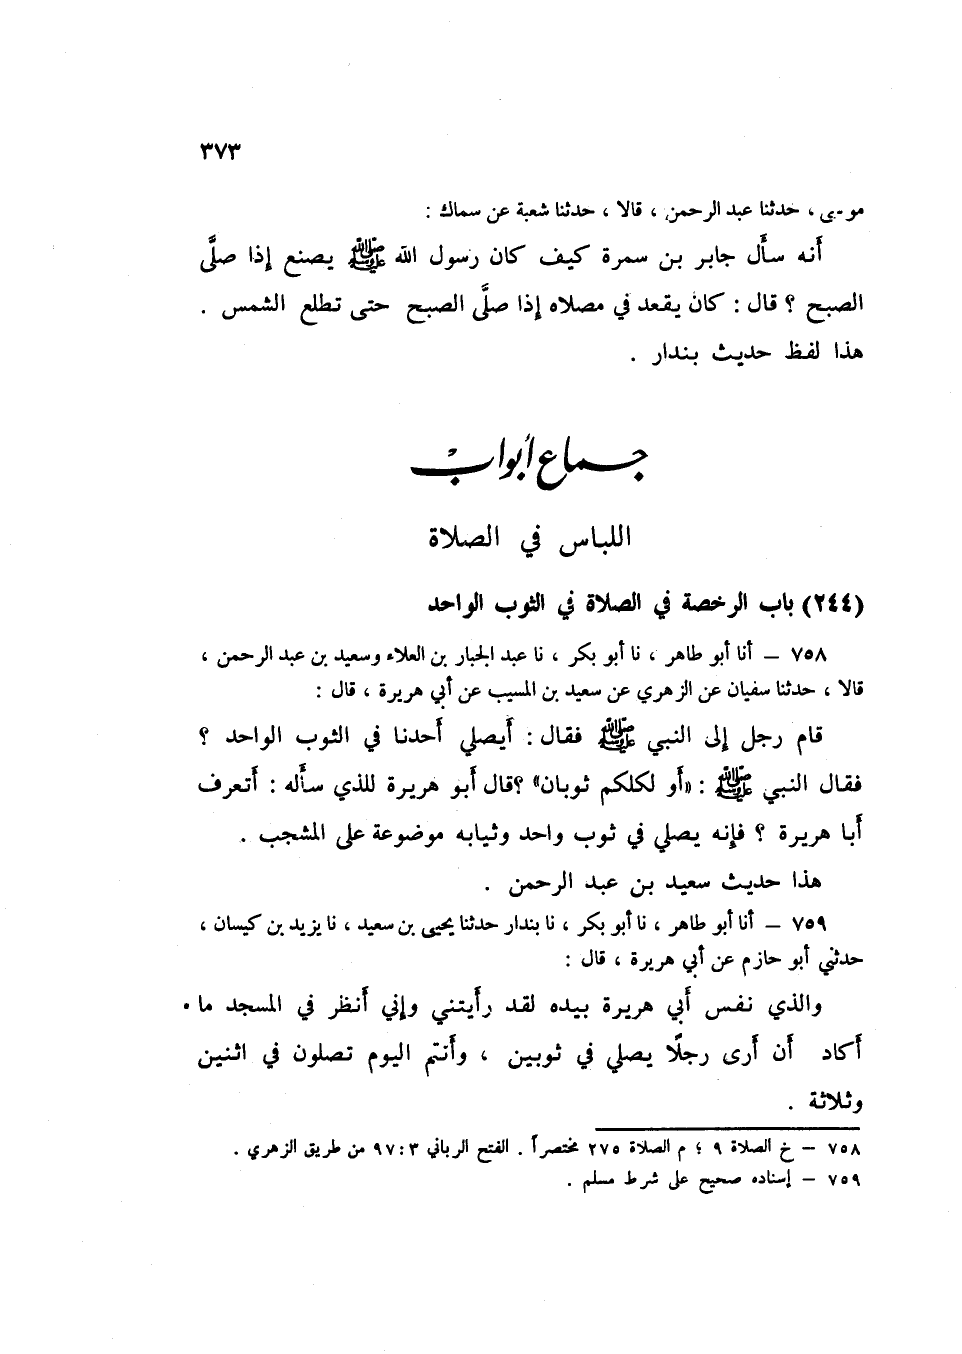 ٣٧٣
موسى ، حدثنا عبد الرحمن ، قالا ، حدثنا شعبة عن سماك :
أنه سأل جابر بن سمرة كيف كان رسول الله ﷺ يصنع إذا صلَّى
الصبح ؟ قال : كان يقعد في مصلاه إذا صلَّى الصبح حتى تطلع الشمس .
هذا لفظ حديث بندار .
جماع أبواب
اللباس في الصلاة
(٢٤٤) باب الرخصة في الصلاة في الثوب الواحد
٧٥٨ – أنا أبو طاهر ، نا أبو بكر ، نا عبد الجبار بن العلاء وسعيد بن عبد الرحمن ،
قالا ، حدثنا سفيان عن الزهري عن سعيد بن المسيب عن أبي هريرة ، قال :
قام رجل إلى النبي ﷺ فقال : أيصلي أحدنا في الثوب الواحد ؟
فقال النبي ﷺ : «أو لكلكم ثوبان» ؟قال أبو هريرة للذي سأله : أتعرف
أبا هريرة ؟ فإنه يصلي في ثوب واحد وثيابه موضوعة على المشجب .
هذا حديث سعيد بن عبد الرحمن .
٧٥٩ – أنا أبو طاهر ، نا أبو بكر ، نا بندار حدثنا يحيى بن سعيد ، نا يزيد بن كيسان ،
حدثني أبو حازم عن أبي هريرة ، قال :
والذي نفس أبي هريرة بيده لقد رأيتني وإني أنظر في المسجد ما
أكاد أن أرى رجلًا يصلي في ثوبين ، وأنتم اليوم تصلون في اثنين
وثلاثة .
٧٥٨ – خ الصلاة ٩ ؛ م الصلاة ٢٧٥ مختصراً . الفتح الرباني ٣ : ٩٧ من طريق الزهري .
٧٥٩ – إسناده صحيح على شرط مسلم .